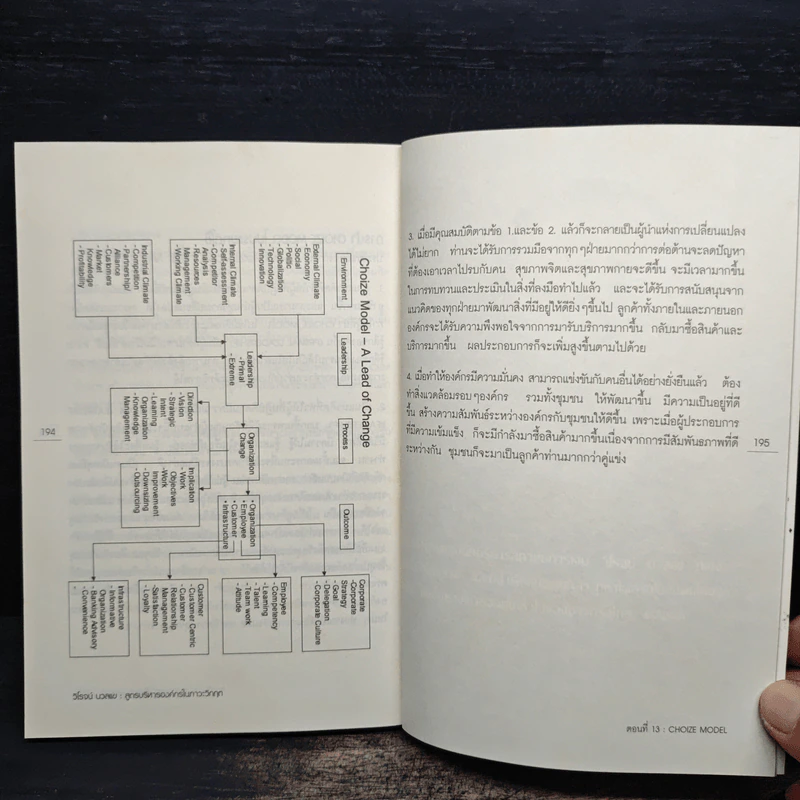 Choize Model – A Lead of Change
Environment
Leadership
Process
Outcome
External Climate
- Economy
- Social
- Politic
- Globalization
- Technology
- Innovation
Internal Climate
- Self-assessment
- Competitor
Analysis
- Resources
Management
- Working Climate
Industrial Climate
- Competition
- Partnership/
Alliance
- Customers
- Market
Knowledge
- Profitability
Leadership
- Primal
- Extreme
Organization
Change
Direction
- Vision
- Strategic
Intent
- Learning
Organization
- Knowledge
Management
Implication
- Work
Objectives
- Work
Improvement
- Downsizing
- Outsourcing
• Organization
• Employee
• Customer
• Infrastructure
Corporate
- Corporate
Strategy
- Goal
- Delegation
- Corporate Culture
Employee
- Competency
- Learning
- Talent
- Team work
- Attitude
Customer
- Customer Centric
- Customer
Relationship
Management
- Satisfaction
- Loyalty
Infrastructure
- Informative
Organization
- Banking Advisory
- Convenience
194
วิโรจน์ นวลแข : สูตรบริหารองค์กรในภาวะวิกฤท
3. เมื่อมีคุณสมบัติตามข้อ 1.และข้อ 2. แล้วก็จะกลายเป็นผู้นำแห่งการเปลี่ยนแปลง
ได้ไม่ยาก ท่านจะได้รับการรวมมือจากทุกๆฝ่ายมากกว่าการต่อต้านจะลดปัญหา
ที่ต้องเอาเวลาไปรบกับคน สุขภาพจิตและสุขภาพกายจะดีขึ้น จะมีเวลามากขึ้น
ในการทบทวนและประเมินในสิ่งที่ลงมือทำไปแล้ว และจะได้รับการสนับสนุนจาก
แนวคิดของทุกฝ่ายมาพัฒนาสิ่งที่มีอยู่ให้ดียิ่งๆขึ้นไป ลูกค้าทั้งภายในและภายนอก
องค์กรจะได้รับความพึงพอใจจากการมารับบริการมากขึ้น กลับมาซื้อสินค้าและ
บริการมากขึ้น ผลประกอบการก็จะเพิ่มสูงขึ้นตามไปด้วย
4. เมื่อทำให้องค์กรมีความมั่นคง สามารถแข่งขันกับคนอื่นได้อย่างยั่งยืนแล้ว ต้อง
ทำสิ่งแวดล้อมรอบๆองค์กร รวมทั้งชุมชน ให้พัฒนาขึ้น มีความเป็นอยู่ที่ดี
ขึ้น สร้างความสัมพันธ์ระหว่างองค์กรกับชุมชนให้ดีขึ้น เพราะเมื่อผู้ประกอบการ
ที่มีความเข้มแข็ง ก็จะมีกำลังมาซื้อสินค้ามากขึ้นเนื่องจากการมีสัมพันธภาพที่ดี
ระหว่างกัน ชุมชนก็จะมาเป็นลูกค้าท่านมากกว่าคู่แข่ง
195
ตอนที่ 13 : CHOIZE MODEL